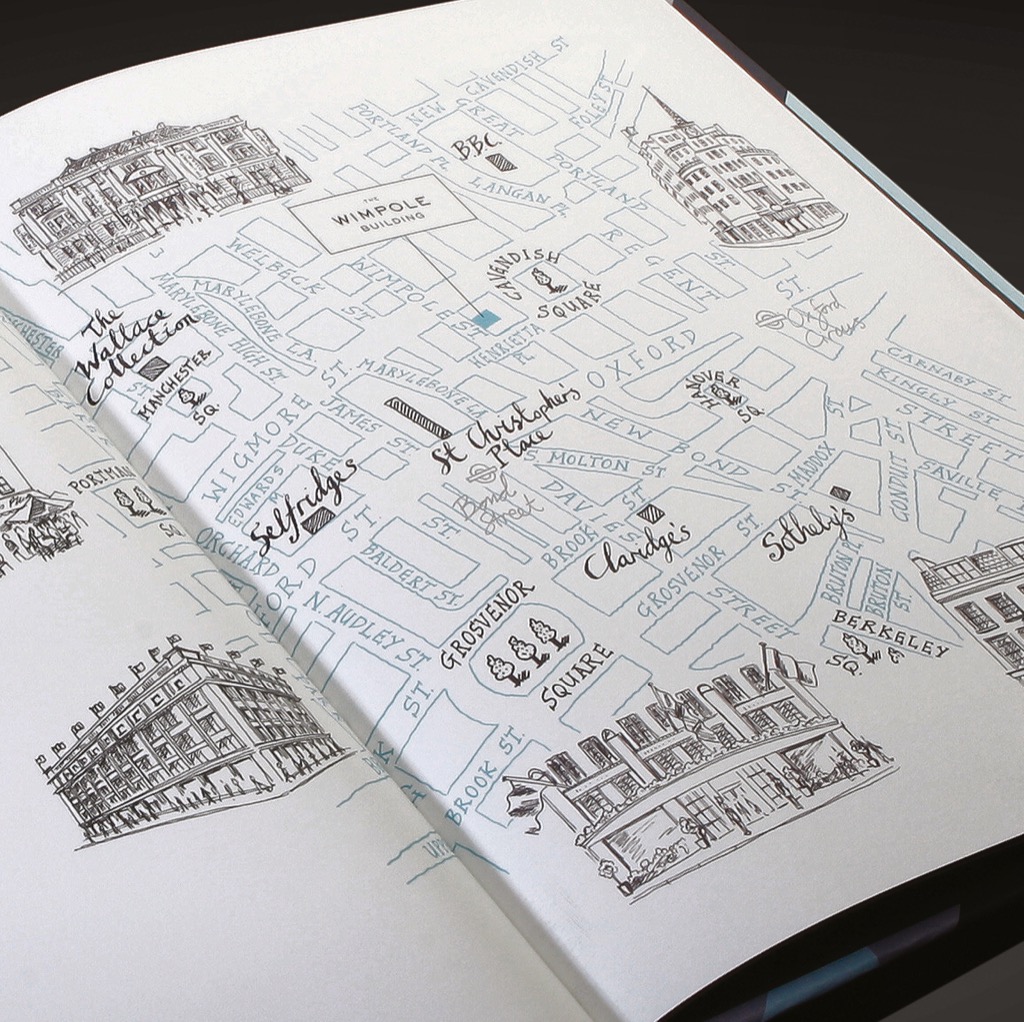 NEW CAVENDISH ST
GREAT
PORTLAND
ST
FOLEY ST
PORTLAND PL
BBC
LANGAN PL
THE
WIMPOLE
BUILDING
WELBECK
ST
WIMPOLE ST
CAVENDISH
SQUARE
REGENT
ST.
ST.
Oxford
MARYLEBONE LA.
MARYLEBONE HIGH ST
HENRIETTA
PL
The
Wallace
Collection
MANCHESTER
SQ.
OXFORD
MARYLEBONE LA
HANOVER
SQ
CARNABY ST.
KINGLY ST
STREET
ST.
JAMES ST
WIGMORE
DUKE
EDWARDS
St Christopher's
Place
NEW BOND ST
S. MOLTON ST
MADDOX
CONDUIT ST.
SAVILLE
PORTMAN
Selfridges
Bond
Street
DAVIES ST
BROOK
Claridge's
Sotheby's
ORCHARD
ST.
BALDERT ST.
GROSVENOR ST.
STREET
BRUTON PL
BRUTON
ST.
BERKELEY
SQ.
N. AUDLEY ST.
GROSVENOR
SQUARE
ST.
BROOK ST.